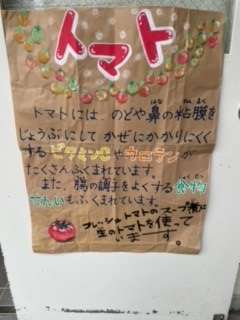 トマト
トマトには、のどや鼻の粘膜を
じょうぶにして かぜにかかりにくく
する ビタミンCや カロテンが
たくさんふくまれています。
また、腸の調子をよくする 食物
せんいもふくまれています。
フレッシュトマトのスープ煮に
生のトマトを使って
います。